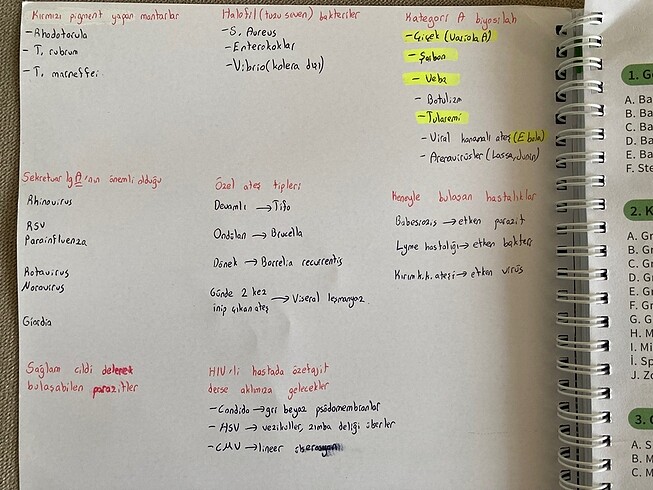 Kırmızı pigment yapan mantarlar
- Rhodotorula
- T. rubrum
- T. marneffei
Halofil (tuzu seven) bakteriler
- S. Aureus
- Enterokoklar
- Vibrio (kolera dışı)
Kategori A biyosilah
- Çiçek (Variola A)
- Şarbon
- Veba
- Botulizm
- Tularemi
- Viral kanamalı ateş (Ebola)
- Arenavirüsler (Lassa, Junin)
Sekretuar IgA'nın önemli olduğu
Rhinovirus
RSV
Parainfluenza
Rotavirus
Norovirus
Giardia
Özel ateş tipleri
Devamlı → Tifo
Ondülan → Brucella
Dönek → Borrelia recurrentis
Günde 2 kez
inip çıkan ateş → Viseral leşmanyoz
Keneyle bulaşan hastalıklar
Babesiosis → etken parazit
Lyme hastalığı → etken bakteri
Kırım k.k. ateşi → etken virüs
Sağlam cildi delerek
bulaşabilen parazitler
HIV'li hastada özefajit
derse aklımıza gelecekler
- Candida → gri beyaz psödomembranlar
- HSV → veziküller, zımba deliği ülserler
- CMV → lineer
1. G
A. Ba
B. Ba
C. Ba
D. Ba
E. Ba
F. Ste
2. K
A. Gr
B. Gr
C. Gr
D. Gr
E. Gr
F. Gr
G. G
H. M
I. Mi
İ. Sp
J. Zo
3.
A. S
B. M
C. M